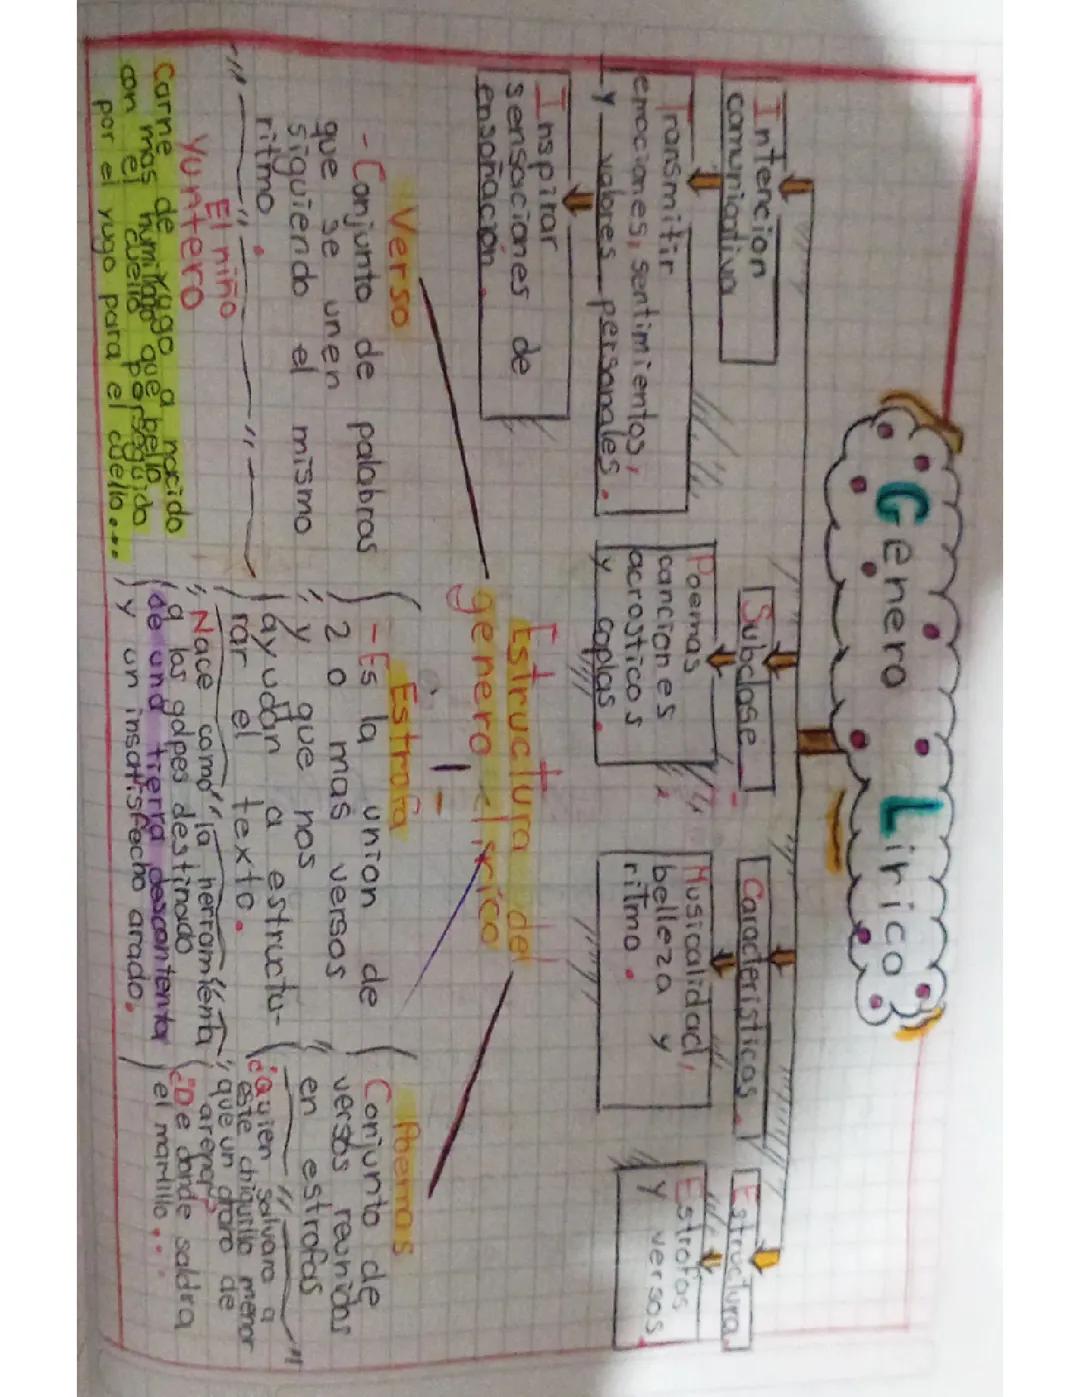 Genero Lirico
Intencion
comunicativa
Transmitir
emociones, sentimientos,
y valores personales.
Inspirar
sensaciones de
ensoñación.
Subclase
Poemas
canciones
acrosticos
y coplas.
Caracteristicas.
Musicalidad,
belleza y
ritmo.
Estructura.
Estrofas
y versos
Estructura del
genero lirico
Verso
- Conjunto de palabras
que se unen
siguiendo el mismo
ritmo.
El niño
Yuntero
Carne de yugo a nacido
mas humillado que bello
con el cuello perseguido
por el yugo para el cuello...
Estrofa
- Es la union de
2 o mas versos
y que nos
ayudan a estructu-
rar el texto.
Nace como la herramienta
a los golpes destinado
de una tierra descontenta
y un insatisfecho arado.
Poemas
Conjunto de
versos reunidos
en estrofas
¿Quien salvara a
este chiquillo menor
que un grano de
arena?
¿De donde saldra
el martillo...